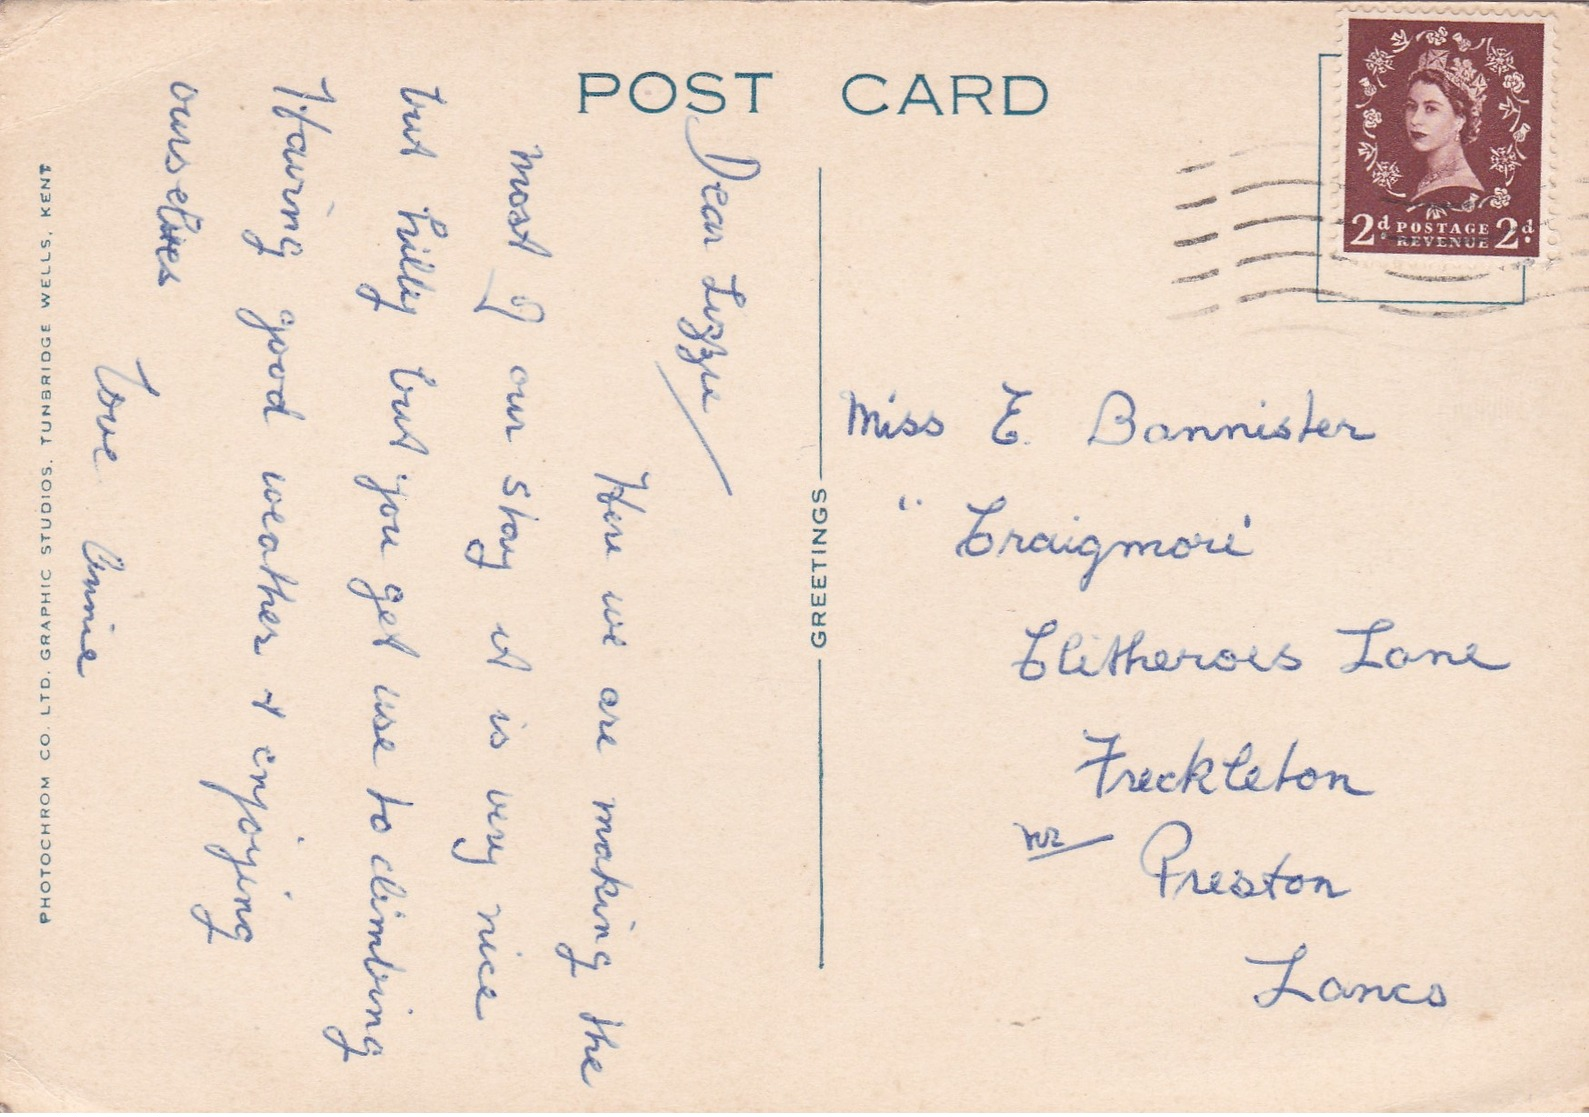 POST CARD
Dear Lizzie
Here we are making the
most of our stay it is very nice
but hilly but you get use to climbing
Having good weather & enjoying
ourselves
Love Annie
PHOTOCHROM CO. LTD. GRAPHIC STUDIOS, TUNBRIDGE WELLS, KENT
GREETINGS
2d POSTAGE 2d.
REVENUE
Miss E. Bannister
"Craigmore"
Clitheroes Lane
Freckleton
nr Preston
Lancs